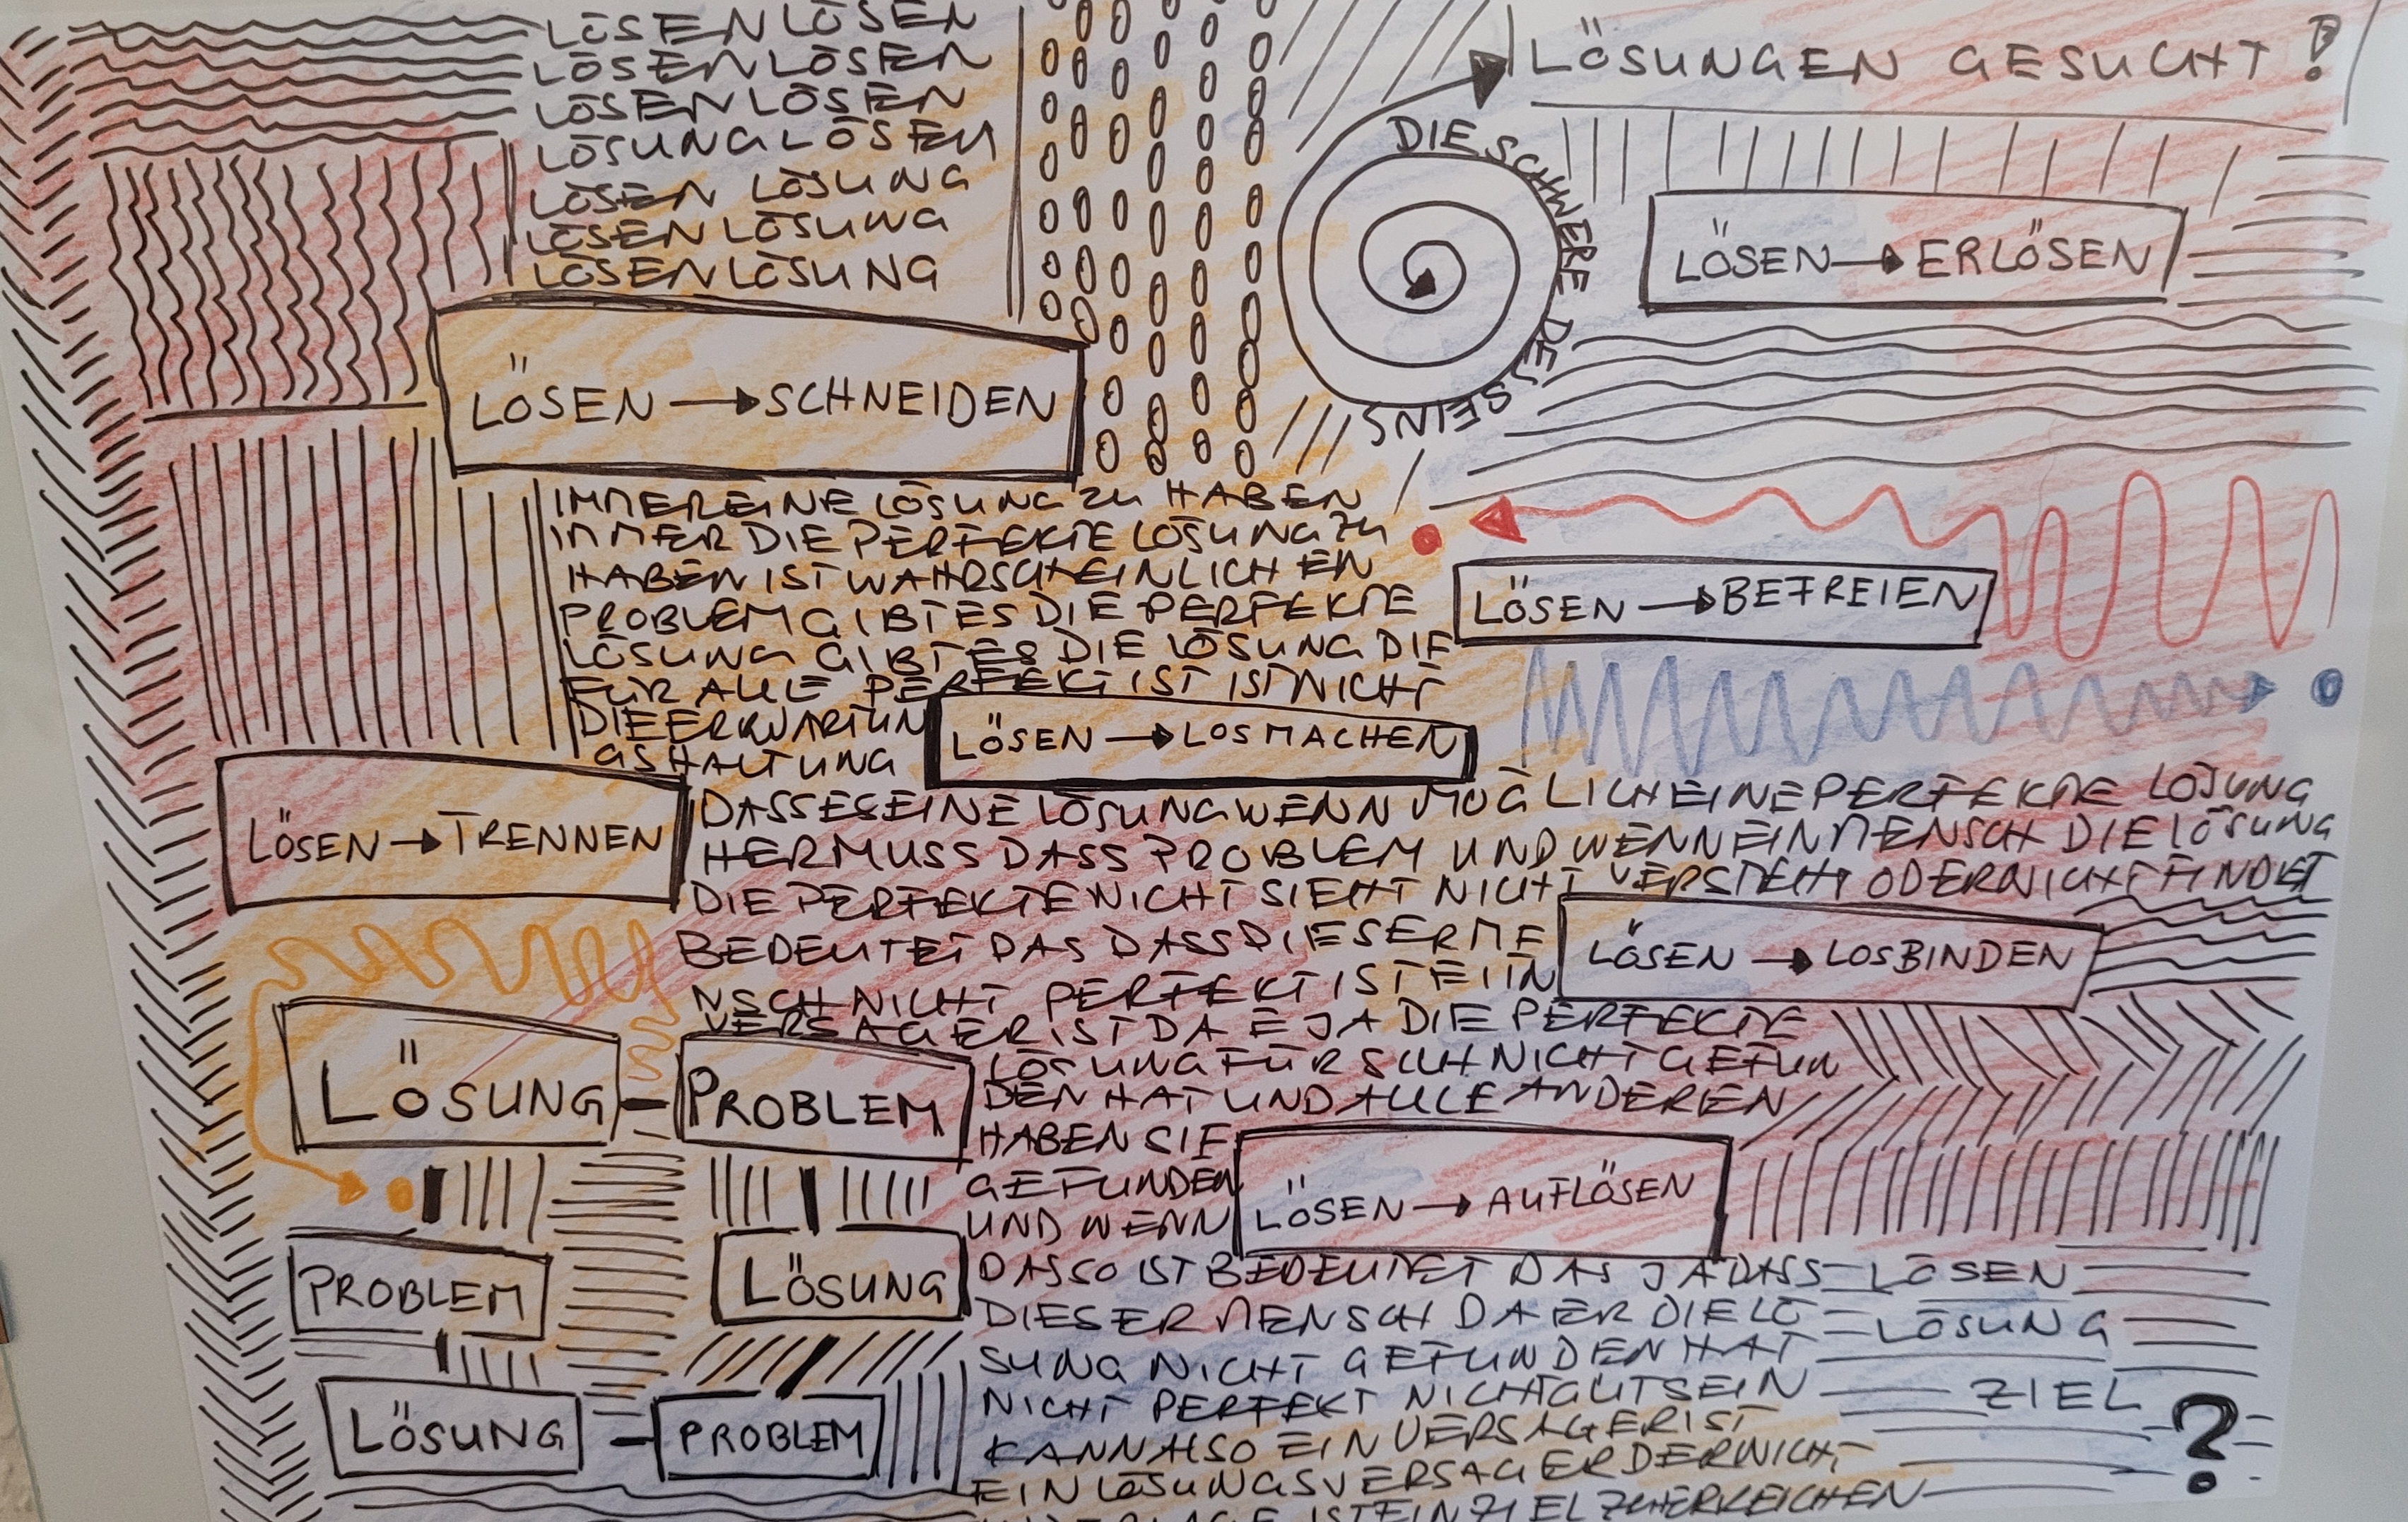 LÖSEN LÖSEN
LÖSEN LÖSEN
LÖSEN LÖSEN
LÖSUNG LÖSEN
LÖSEN LÖSUNG
LÖSEN LÖSUNG
LÖSEN LÖSUNG
LÖSUNGEN GESUCHT!
DIE SCHWERE DES SEINS
LÖSEN → ERLÖSEN
LÖSEN → SCHNEIDEN
IMMER EINE LÖSUNG ZU HABEN
IMMER DIE PERFEKTE LÖSUNG ZU
HABEN IST WAHRSCHEINLICH EIN
PROBLEM GIBT ES DIE PERFEKTE
LÖSUNG GIBT ES DIE LÖSUNG DIE
FÜR ALLE PERFEKT IST IST NICHT
DIE ERWARTUN
GSHALTUNG
LÖSEN → BEFREIEN
LÖSEN → LOSMACHEN
LÖSEN → TRENNEN
DASS ES EINE LÖSUNG WENN MÖGLICH EINE PERFEKTE LÖSUNG
HER MUSS DASS PROBLEM UND WENN EIN MENSCH DIE LÖSUNG
DIE PERFEKTE NICHT SIEHT NICHT VERSTEHT ODER NICHT FINDET
BEDEUTET DAS DASS DIESER ME
NSCH NICHT PERFEKT IST EIN
VERSAGER IST DA E JA DIE PERFEKTE
LÖSUNG FÜR SICH NICHT GEFUN
DEN HAT UND ALLE ANDEREN
HABEN SIE
GEFUNDEN
UND WENN
LÖSEN → LOSBINDEN
LÖSUNG - PROBLEM
LÖSEN → AUFLÖSEN
PROBLEM
LÖSUNG
LÖSUNG - PROBLEM
DAS SO IST BEDEUTET DAS JA DASS
DIESER MENSCH DA ER DIE LÖ
SUNG NICHT GEFUNDEN HAT
NICHT PERFEKT NICHT GUT SEIN
KANN ALSO EIN VERSAGER IST
EIN LÖSUNGSVERSAGER DER NICHT
IST EIN ZIEL ZU ERREICHEN
LÖSEN
LÖSUNG
ZIEL
?